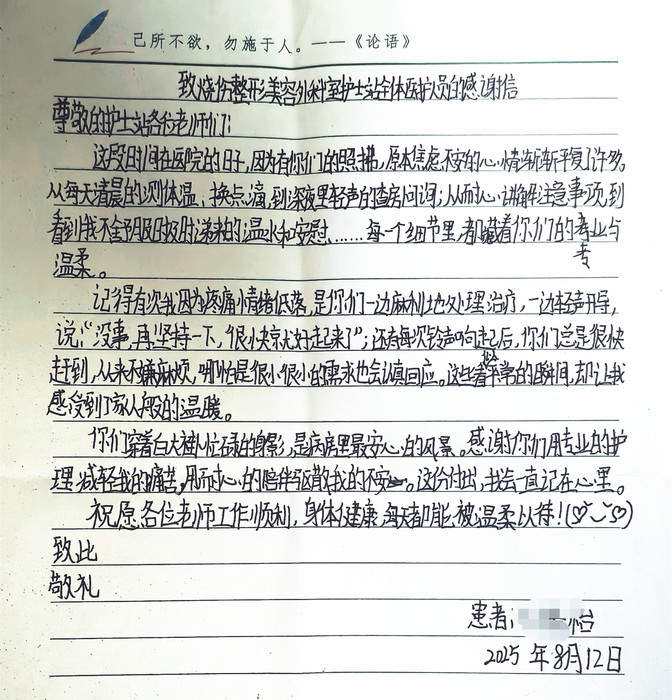 己所不欲，勿施于人。——《论语》
致烧伤整形美容外科室护士站全体医护人员的感谢信
尊敬的护士站各位老师们：
这段时间在医院的日子，因为有你们的照拂，原本焦虑不安的心情渐渐平复了许多。
从每天清晨的测体温、换点滴，到深夜里轻声的查房问询；从耐心讲解注意事项，到
看到我不舒服时及时递来的温水和安慰……每一个细节里，都藏着你们的专业与
专
温柔。
记得有次我因为疼痛情绪低落，是你们一边麻利地处理治疗，一边轻声开导，
说：“没事，再坚持一下，很快就好起来了”；还有每次铃声响起后，你们总是很快
赶到，从来不嫌麻烦，哪怕是很小很小的需求也会认真回应。这些看似平常的瞬间，却让我
感受到了家人般的温暖。
你们穿着白大褂忙碌的身影，是病房里最安心的风景。感谢你们用专业的护
理减轻我的痛苦，用耐心的陪伴驱散我的不安。这份付出，我会一直记在心里。
祝愿各位老师工作顺利，身体健康，每天都能被温柔以待！
致此
敬礼
患者：怡
2025年8月12日